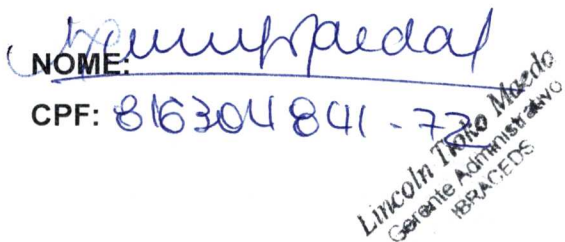 NOME:
CPF: 816304841-72
Lincoln Tioko Maedo
Gerente Administrativo
IBRACEDS